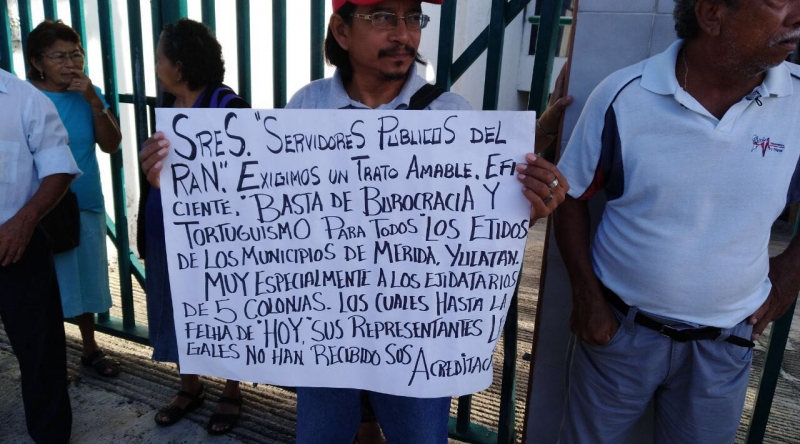 SRES. "SERVIDORES PÚBLICOS DEL
RAN". EXIGIMOS UN TRATO AMABLE. EFI
CIENTE. "BASTA DE BUROCRACIA Y
TORTUGUISMO PARA TODOS" LOS EJIDOS
DE LOS MUNICIPIOS DE MERIDA, YUCATAN.
MUY ESPECIALMENTE A LOS EJIDATARIOS
DE 5 COLONIAS. LOS CUALES HASTA LA
FECHA DE "HOY", SUS REPRESENTANTES LE
GALES NO HAN RECIBIDO SUS ACREDITACI